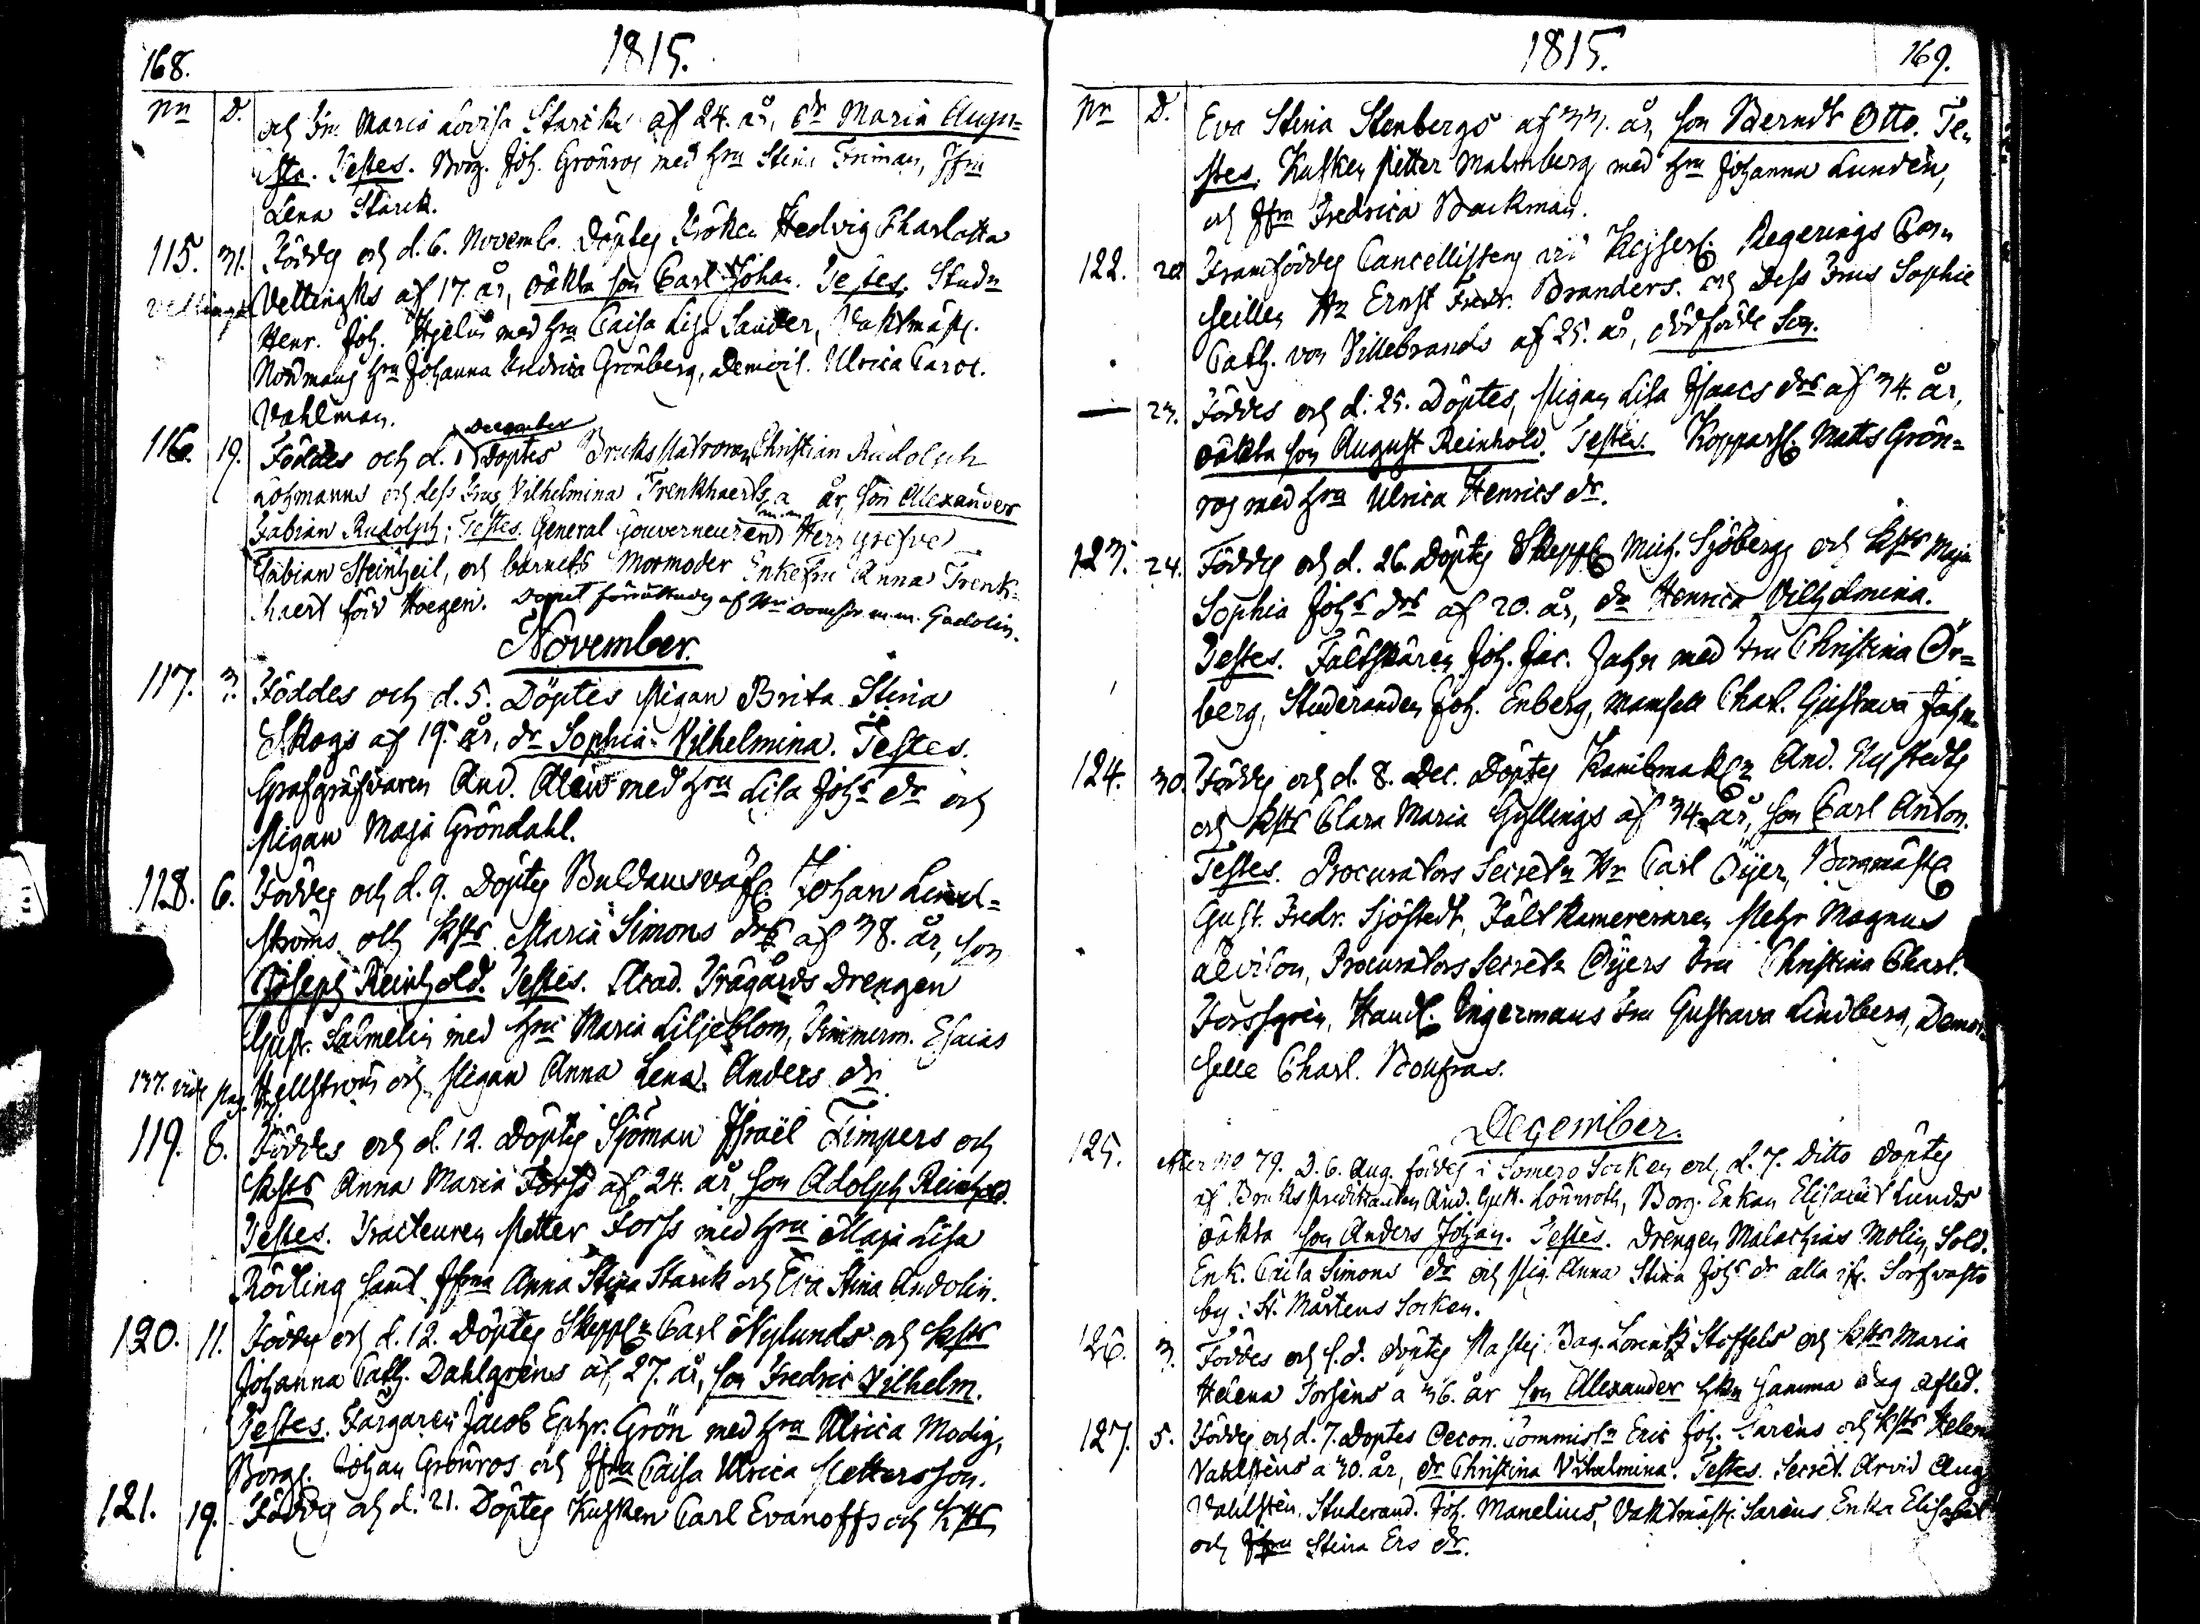 168.
1815.
Nn D.
och Fru Maria Lovisa Starcks af 24. år, dr Maria Augu=
sta. Testes. Borg. Joh. Grönros med hru Stina Friman, Jfru
Lena Starck.
115. 31. Föddes och d. 6. Novemb. Döptes Fröken Hedvig Charlotta
Vellingks Vellingks af 17. år, oäkta son Carl Johan. Testes. Studn
Henr. Joh. Hjelin med hru Caisa Lisa Sander, Vaktmäst.
Nordmans hru Johanna Fredrica Grönberg, Demois. Ulrica Carol.
Vahlman.
116. 19. Föddes och d. 1 December Döptes Bruks Patronen Christian Rudolph
Lohmanns och dess Frus Vilhelmina Trenkhaerts a år, son Alexander
Fabian Rudolph; Testes. General Gouverneuren m.m. Herr Grefve
Fabian Steinheil, och barnets Mormoder Enkefru Anna Trenk-
haert född Hoegen. Dopet förrättades af Hr Domspr m.m. Gadolin.
November.
117. 3. Föddes och d. 5. Döptes Pigan Brita Stina
Skogs af 19. år, dr Sophia Vilhelmina. Testes.
Grafgräfvaren And. Alen med hru Lisa Johs dr och
Pigan Maja Gröndahl.
118. 6. Föddes och d. 9. Döptes Buldansväfv. Johan Lind=
ströms och hsts Maria Simons drs af 38. år, son
Joseph Reinhold. Testes. Acad. Trägårds Drengen
Gust. Salmelin med hru Maria Liljeblom, Timmerm. Esaias
137. vide pag. Hellström och Pigan Anna Lena Anders dr.
119. 8. Föddes och d. 12. Döptes Sjöman Israël Timpers och
hsts Anna Maria Forss af 24. år, son Adolph Reinhold.
Testes. Tracteuren Petter Forss med hru Maja Lisa
Rödling samt Jfrna Anna Stina Starck och Eva Stina Andolin.
120. 11. Föddes och d. 12. Döptes Skeppn Carl Nylunds och hsts
Johanna Cath. Dahlgrens af 27. år, son Fredric Vilhelm.
Testes. Färgaren Jacob Ephr. Grön med hru Ulrica Modig,
Borg. Johan Grönros och Jfru Caisa Ulrica Pettersson.
121. 19. Föddes och d. 21. Döptes Kusken Carl Evanoffs och hsts
1815.
169.
Nn D.
Eva Stina Stenbergs af 33. år, son Berndt Otto. Te-
stes. Kusken Petter Malmberg med hru Johanna Lunden,
och Jfru Fredrica Backman.
122. 20 Framföddes Cancellisten vid Kejserl. Regerings Con-
seillen Hr Ernst Fredr. Branders och Dess Frus Sophie
Cath. von Villebrands af 25. år, dödfödde Son.
— 23. Föddes och d. 25. Döptes, Pigan Lisa Isaacs drs af 34. år,
oäkta son August Reinhold. Testes. Kopparsl. Matts Grön=
ros med hru Ulrica Henrics dr.
123. 24. Föddes och d. 26. Döptes Skepp Mich. Sjöbergs och hsts Maja
Sophia Johs drs af 20. år, dr Henrica Vilhelmina.
Testes. Fältskären Joh. Jac. Jahn med Fru Christina Ör=
berg, Studeranden Joh. Enberg, Mamsell Charl. Gustava Jahn.
124. 30. Föddes och d. 8. Dec. Döptes Kambmak And. Nystedts
och hsts Clara Maria Gyllings af 34 år, son Carl Anton.
Testes. Procurators Secretn Hr Carl Öijer, Borgmäst
Gust. Fredr. Sjöstedt, Fält Kamereraren Pehr Magnus
Levison, Procurators Secretn Öijers Fru Christina Charl.
Forssgren, Handl. Ingermans Fru Gustava Lindberg, Demoi=
selle Charl. Bonfras.
December.
125. efter No 79. D. 6. Aug. föddes i Somero Socken och d. 7. Ditto döptes
af Bruks Predikanten And. Gust. Lönnroth, Borg. Enkan Elisabet Lunds
oäkta son Anders Johan. Testes. Drengen Malachias Molin, Sold.
Enk. Caisa Simons dr och Pig. Anna Stina Johs dr alla ifr. Sorfvasto
by i St. Mårtens Socken.
126. 3. Föddes och s.d. döptes Pastej Bag. Lorentz Stoffels och hsts Maria
Helena Forsens a 36. år son Alexander samma dag afled.
127. 5. Föddes och d. 7. Döptes Oecon. Commissn Eric Joh. Sarens och hsts Helen
Vahlstens a 30. år, dr Christina Vilhelmina. Testes. Secret. Arvid Aug.
Vahlsten, Studerand. Joh. Manelius, Vaktmäst. Sarens Enka Elisabet
och Jfru Stina Ers dr.